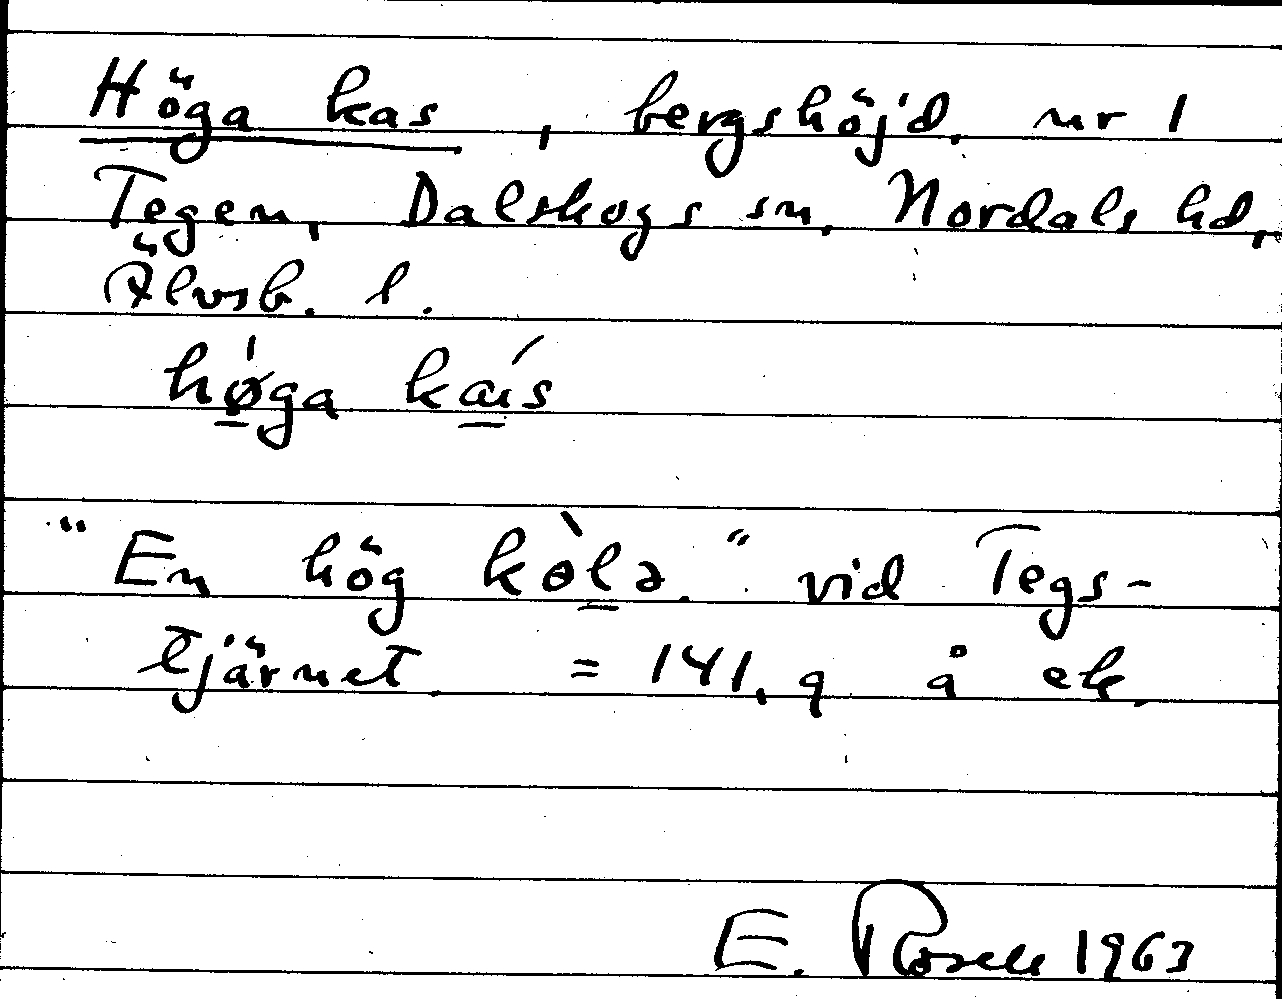 Höga kas, bergshöjd, nr 1
Tegen, Dalskogs sn, Nordals hd,
Älvsb. l.
hǿ̱ga ka̱ıś
"En hög kòl̲ə." vid Tegs-
tjärnet. = 141,9 å ek.
E. Rosell 1963